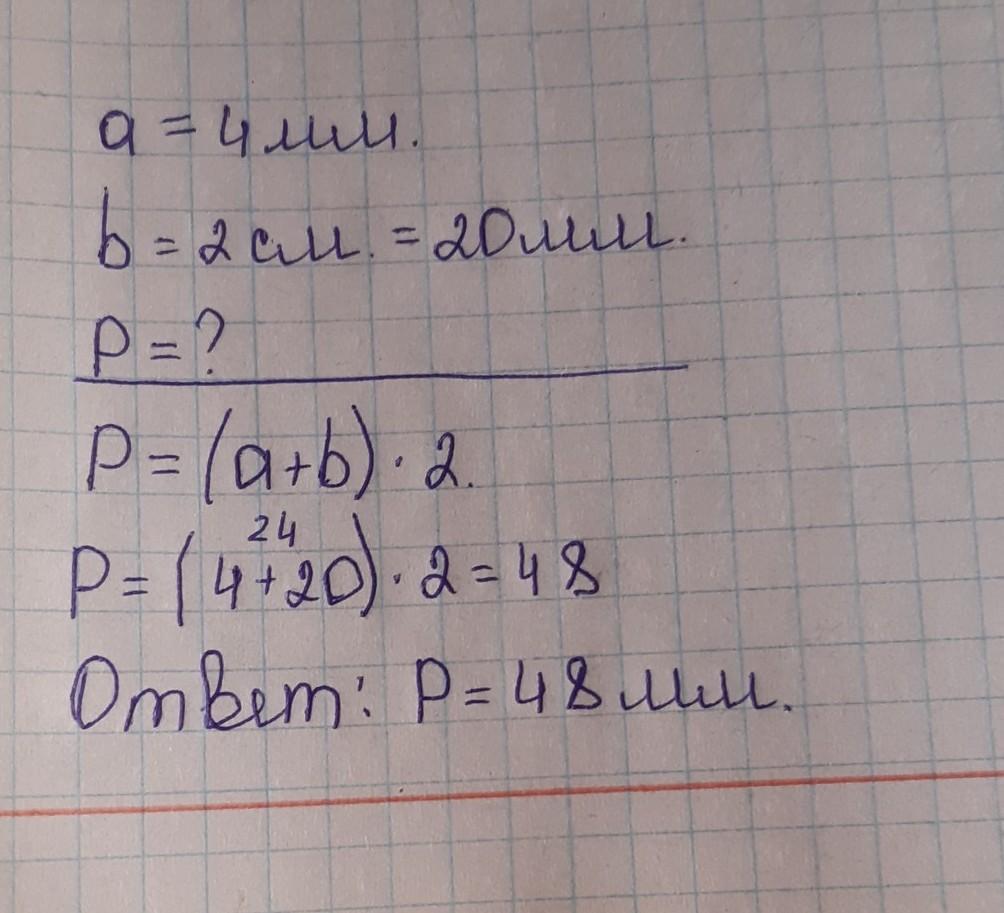 a = 4 мм.
b = 2 см. = 20 мм.
P = ?
P = (a+b) · 2.
24
P = (4+20) · 2 = 48
Ответ: P = 48 мм.